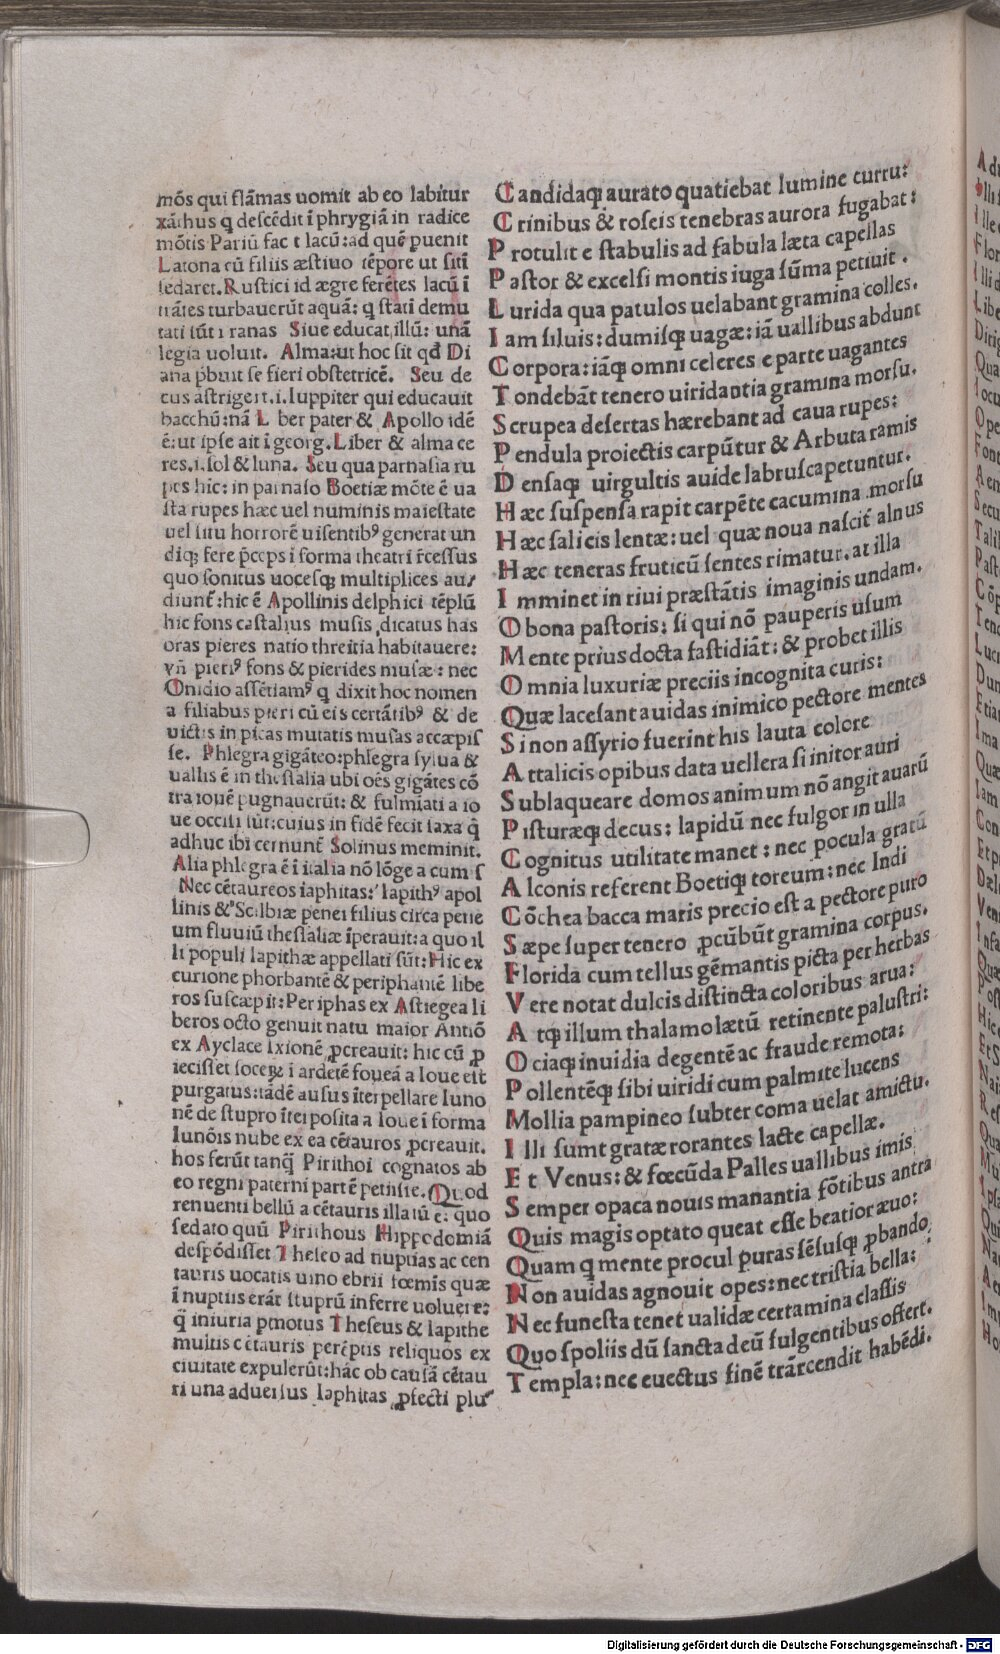 mõs qui flãmas uomit ab eo labitur
xãthus q descẽdit ĩ phrygiã in radice
mõtis Pariũ fac t lacũ: ad quẽ puenit
Latona cũ filiis æstiuo tẽpore ut sitĩ
sedaret. Rustici id ægre ferẽtes lacũ ĩ
trãtes turbauerũt aquã: q stati demu
tati sũt ĩ ranas Siue educat illũ: unã
legia uoluit. Alma: ut hoc sit qđ Di
ana p̱buit se fieri obstetricẽ. Seu de
cus astrigeri .i. Iuppiter qui educauit
bacchũ: nã L ber pater & Apollo idẽ
ẽ: ut ipse ait ĩ georg. Liber & alma ce
res .i. sol & luna. Seu qua parnasia ru
pes hic: in parnaso Boetiæ mõte ẽ ua
sta rupes hæc uel numinis maiestate
uel situ horrorẽ uisentibꝰ generat un
diqꝫ fere p̃ceps ĩ forma theatri r̃cessus
quo sonitus uocesqꝫ multiplices au/
diunt̃: hic ẽ Apollinis delphici tẽplũ
hic fons castalius musis dicatus has
oras pieres natio threitia habitauere:
vñ pieriꝰ fons & pierides musæ: nec
Onidio assẽtiamꝰ q dixit hoc nomen
a filiabus pieri cũ eis certãtibꝰ & de
uictis in picas mutatis musas accæpis
se. Phlegra gigãteo: phlegra sylua &
uallis ẽ in thessalia ubi oẽs gigãtes cõ
tra iouẽ pugnauerũt: & fulmiati a io
ue occisi sũt: cuius in fidẽ fecit saxa q̃
adhuc ibi cernunt̃ Solinus meminit.
Alia phlegra ẽ ĩ italia nõ lõge a cum ſ
Nec cẽtaureos iaphitas: lapithꝰ apol
linis & Scilbiæ penei filius circa pene
um fluuiũ thessaliæ ĩperauit: a quo il
li populi lapithæ appellati sũt: Hic ex
curione phorbantẽ & periphantẽ libe
ros suscæpit: Periphas ex Astiegea li
beros octo genuit natu maior Antiõ
ex Ayclace Ixionẽ ꝓcreauit: hic cũ ꝓ
iecisset soceꝝ ĩ ardẽtẽ foueã a Ioue eſt
purgatus: tãdẽ ausus ĩterpellare Iuno
nẽ de stupro ĩterposita a Ioue ĩ forma
Iunõis nube ex ea cẽtauros ꝓcreauit.
hos ferũt tanq̃ Pirithoi cognatos ab
eo regni paterni partẽ petiisse. Quod
renuenti bellũ a cẽtauris illatũ ẽ: quo
sedato quũ Pirithous Hippodomiã
despõdisset Theseo ad nuptias ac cen
tauris uocatis uino ebrii fœmĩs quæ
ĩ nuptiis erãt stuprũ inferre uoluere:
q̃ iniuria p̱motus Theseus & lapithe
multis cẽtauris perẽptis reliquos ex
ciuitate expulerũt: hãc ob causã cẽtau
ri una aduersus laphitas ꝓfecti plu
Candidaqꝫ aurato quatiebat lumine curru:
Crinibus & roseis tenebras aurora fugabat:
Protulit e stabulis ad fabula læta capellas
Pastor & excelsi montis iuga sũma petiuit.
Lurida qua patulos uelabant gramina colles.
Iam siluis: dumisqꝫ uagæ: iã uallibus abdunt
Corpora: iãqꝫ omni celeres e parte uagantes
Tondebãt tenero uiridantia gramina morsu.
Scrupea desertas hærebant ad caua rupes:
Pendula proiectis carpũtur & Arbuta ramis
Densaqꝫ uirgultis auide labrusca petuntur.
Hæc suspensa rapit carpẽte cacumina morsu
Hæc salicis lentæ: uel quæ noua nascit̃ alnus
Hæc teneras fruticũ sentes rimatur. at illa
Imminet in riui præstãtis imaginis undam.
O bona pastoris: si qui nõ pauperis usum
Mente prius docta fastidiãt: & probet illis
Omnia luxuriæ preciis incognita curis:
Quæ lacesant auidas inimico pectore mentes
Si non assyrio fuerint his lauta colore
Attalicis opibus data uellera si initor auri
Sublaqueare domos animum nõ angit auarũ
Pisturæqꝫ decus: lapidũ nec fulgor in ulla
Cognitus utilitate manet: nec pocula gratũ
Alconis referent Boetiqꝫ toreum: nec Indi
Cõchea bacca maris precio est a pectore puro
Sæpe super tenero ꝓcũbũt gramina corpus.
Florida cum tellus gẽmantis picta per herbas
Vere notat dulcis distincta coloribus arua:
Atqꝫ illum thalamo lætũ retinente palustri:
Ociaqꝫ inuidia degentẽ ac fraude remota:
Pollentẽqꝫ sibi uiridi cum palmite lucens
Mollia pampineo subter coma uelat amictu.
Illi sumt gratæ rorantes lacte capellæ.
Et Venus: & fœcũda Palles uallibus imis
Semper opaca nouis manantia fõtibus antra
Quis magis optato queat esse beatior æuo:
Quam q mente procul puras sẽsusqꝫ ꝓbando
Non auidas agnouit opes: nec tristia bella:
Nec funesta tenet ualidæ certamina classis
Quo spoliis dũ sancta deũ fulgentibus offert.
Templa: nec euectus finẽ trãrcendit habẽdi.
Digitalisierung gefördert durch die Deutsche Forschungsgemeinschaft - DFG